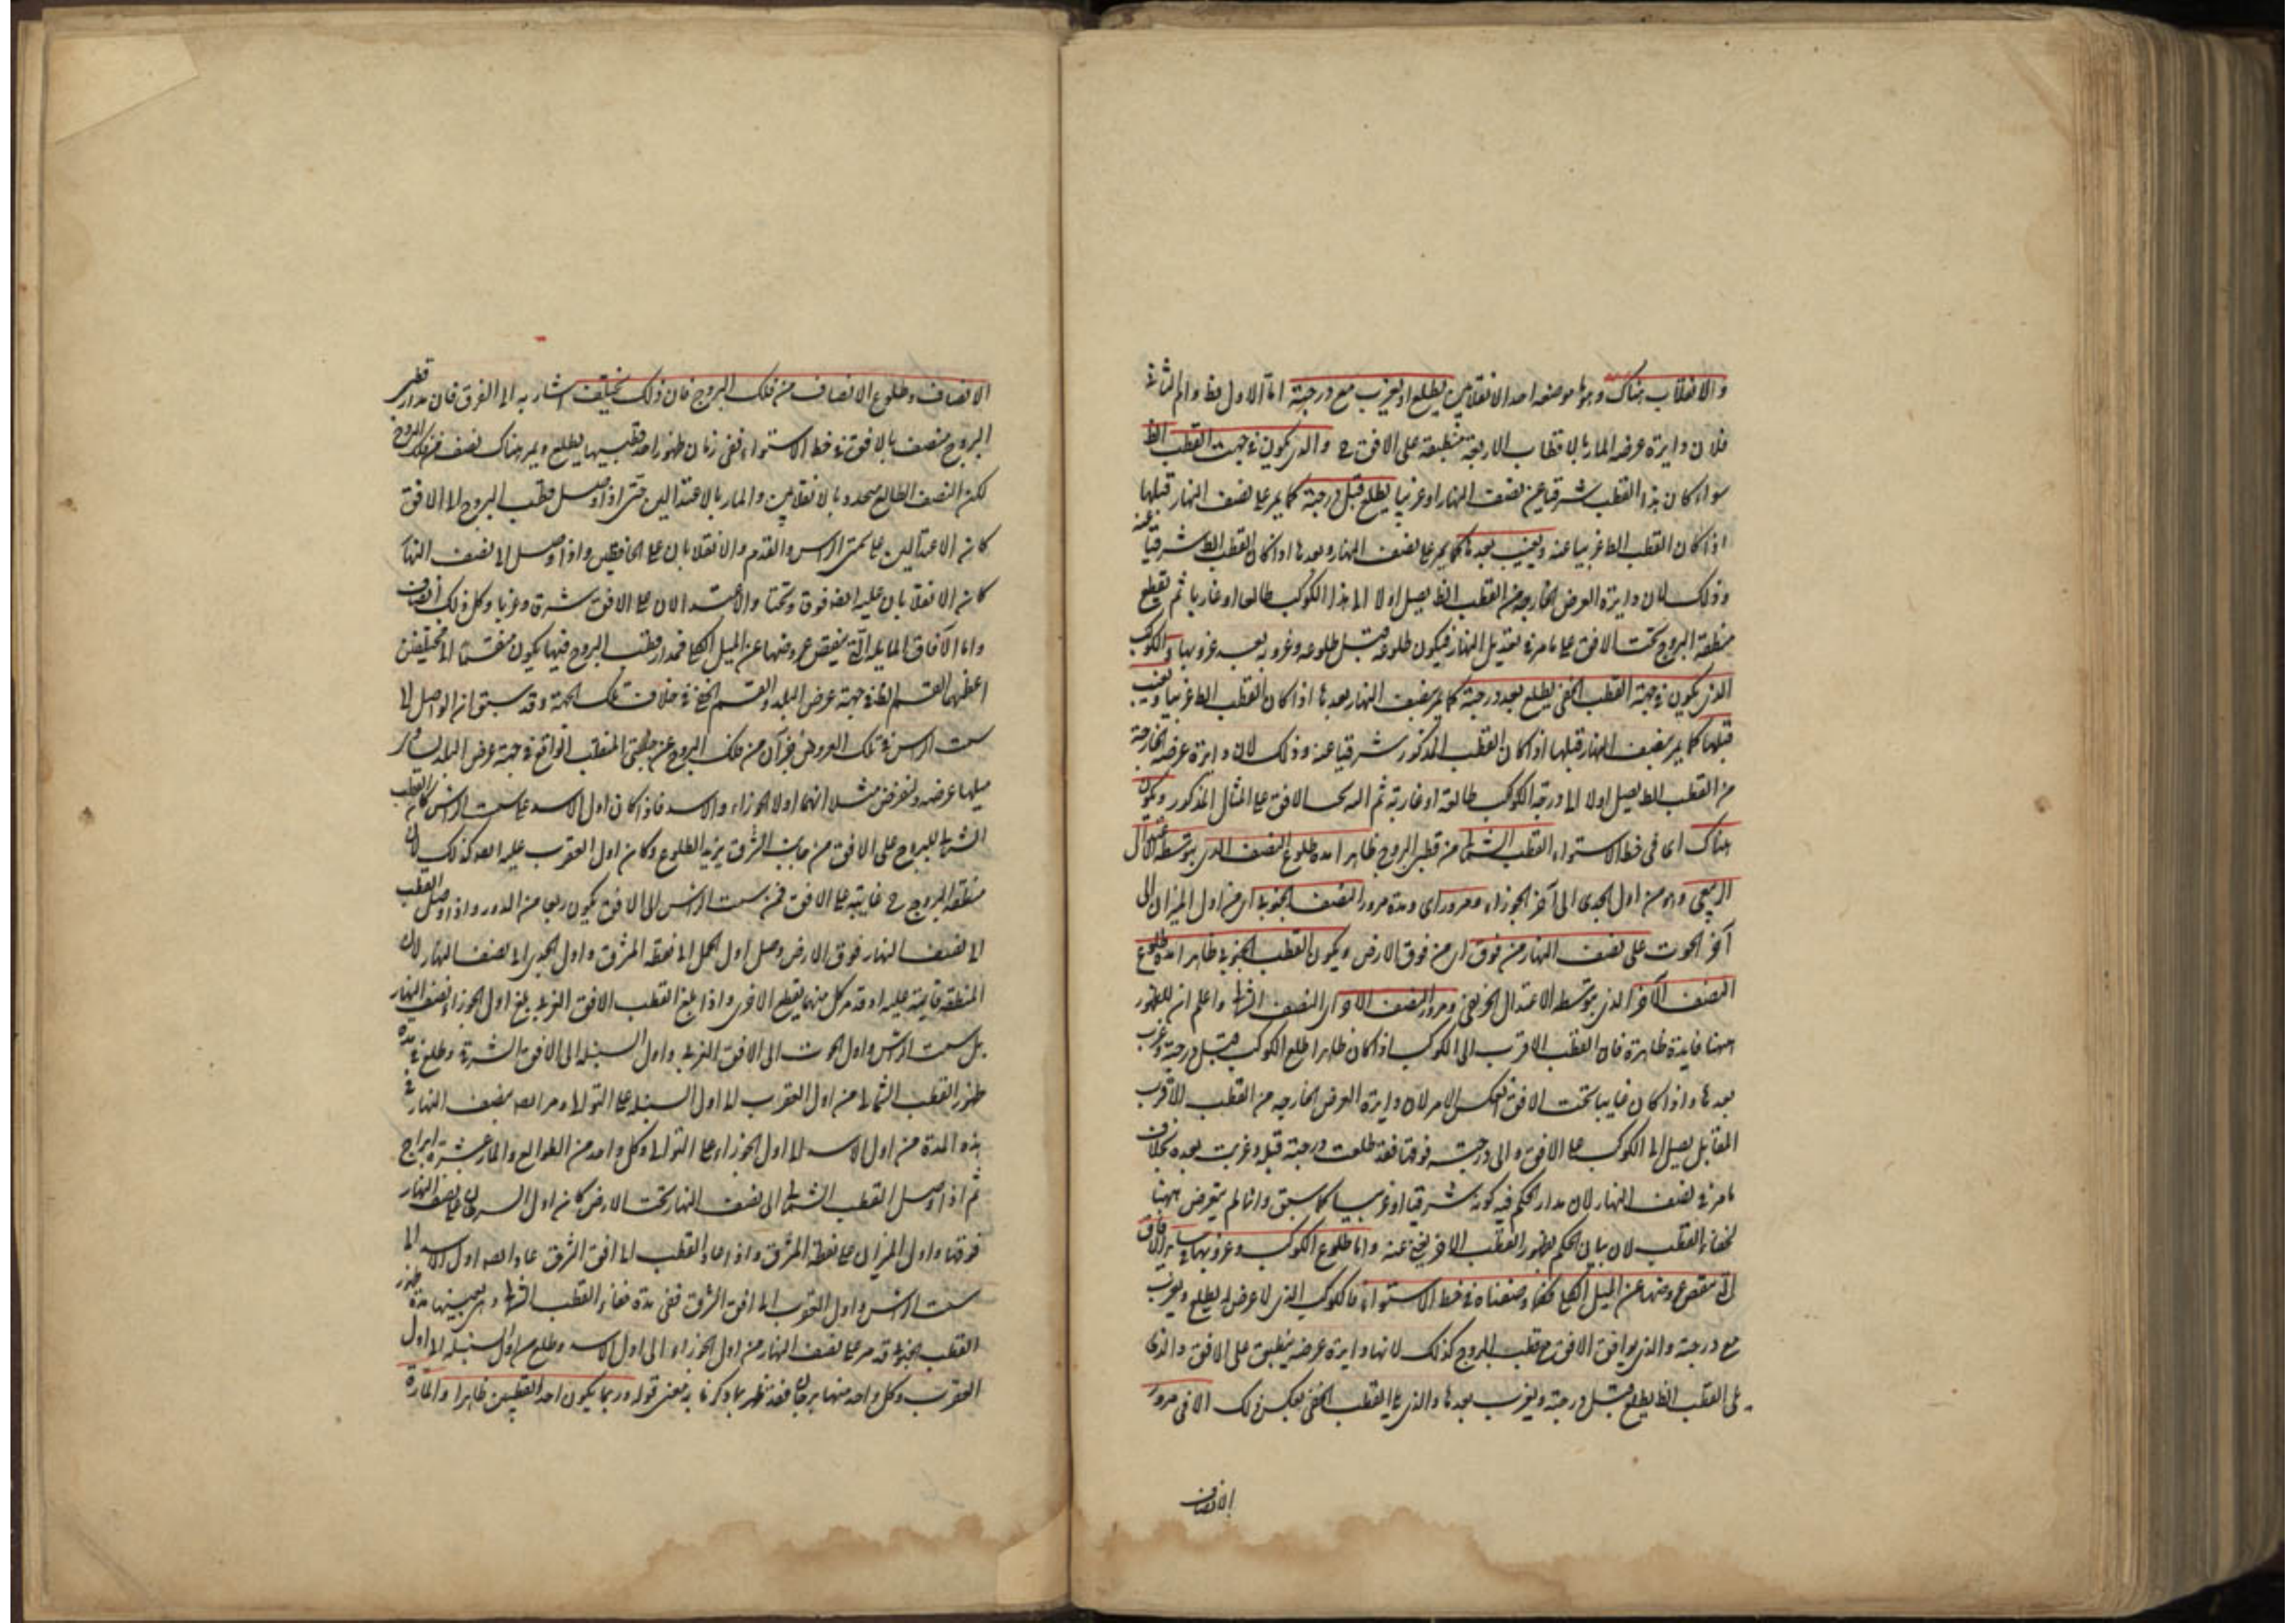 والانقلاب هناك وهما موضعا احد الانقلابين يطلع او يغرب مع درجته اما الاول فظ واما الثانى
فلان دايرة عرضه المارة بالاقطاب الاربعة منطبقة على الافق ح والذى يكون فى جهت القطب الظ
سواء كان هذا القطب شرقيا عن نصف النهار او غربيا يطلع قبل درجته كما يمر على نصف النهار قبلها
اذا كان القطب الظ غربيا عنه ويغيب بعدها كما يمر على نصف النهار بعدها اذا كان القطب الظ شرقيا عنه
وذلك لان دايرة العرض الخارجة من القطب الظ يصل اولا الى هذا الكوكب طالعا او غاربا ثم يقطع
منطقة البروج تحت الافق على ما مر فى تعديل النهار فيكون طلوعه قبل طلوعه وغروبه بعد غروبها والكوكب
الذى يكون فى جهة القطب الخفى يطلع بعد درجته كما يمر بنصف النهار بعدها اذا كان القطب الظ غربيا ويغيب
قبلها كما يمر بنصف النهار قبلها اذا كان القطب المذكور شرقيا عنه وذلك لان دايرة عرضه الخارجة
من القطب الظ يصل اولا الى درجة الكوكب طالعة او غاربة ثم اليه تحت الافق على المثال المذكور ويكون
هناك اى فى خط الاستواء القطب الشمالى من قطبى البروج ظاهرا مدة طلوع النصف الذى يتوسطه الاعتدال
الربيعى وهو من اول الجدى الى آخر الجوزاء ومرور اى ومدة مرور النصف الجنوبى اى من اول الميزان الى
آخر الحوت على نصف النهار من فوق اى من فوق الارض ويكون القطب الجنوبى ظاهرا مدة طلوع
النصف الآخر الذى يتوسطه الاعتدال الخريفى ومرور النصف الآخر اى النصف الشمالى واعلم ان للظهور
ههنا فايدة ظاهرة فان القطب الاقرب الى الكوكب اذا كان ظاهرا طلع الكوكب قبل درجته وغرب
بعدها واذا كان غايبا تحت الافق انعكس الامر لان دايرة العرض الخارجه من القطب الاقرب
المقابل يصل الى الكوكب على الافق والى درجته فوقها فقد طلعت درجته قبله وغربت بعده بخلاف
ما مر فى نصف النهار لان مدار الحكم فيه كونه شرقيا او غربيا كما سبق وانما لم يتعرض ههنا
لخفاء القطب لان بيان الحكم بظهور القطب الآخر يغنى عنه واما طلوع الكوكب وغروبها فى ساير الآفاق
التى ينقص عروضها عن الميل الكلى فكما وصفناه فى خط الاستواء فالكوكب الذى لا عرض له يطلع ويغرب
مع درجته والذى يوافق الافق مع قطب البروج كذلك لانها دايرة عرضه ينطبق على الافق والذى
يلى القطب الظ يطلع قبل درجته ويغرب بعدها والذى يلى القطب الخفى بعكس ذلك الا فى مرور
الانصاف
الانصاف وطلوع الانصاف من فلك البروج فان ذلك يختلف اشار به الى الفرق فان مدار قطبى
البروج منصف بالافق فى خط الاستواء ففى زمان ظهور احد قطبيها يطلع ويمر هناك نصف من فلك البروج
لكن النصف الطالع محدود بالانقلابين والمار بالاعتدالين حتى اذا وصل قطب البروج الى الافق
كان الاعتدالين على سمتى الراس والقدم والانقلابان على الحافظين واذا وصل الى نصف النهار
كان الانقلابان عليه ايضا فوق وتحتا والاعتدالان على الافق شرقا وغربا وكل ذلك انصاف
واما الآفاق المايلة التى ينقص عروضها عن الميل الكلى فمدار قطب البروج فيها يكون منقسما الى مختلفين
اعظمهما القسم الظ فى جهة عرض البلد والقسم الخفى فى خلاف تلك الجهة وقد سبق ان الواصل الى
سمت الراس فى تلك العروض جزآن من فلك البروج عن جنبتى المنقلب الواقع فى جهة عرض البلد يساوى
ميلها عرضه ولنفرض مثلا انهما اولا الجوزاء والاسد فاذا كان اول الاسد على سمت الراس كان القطب
الشمالى للبروج على الافق من جانب الشرق يريد الطلوع وكان اول العقرب عليه ايضا كذلك لان
منطقة البروج ح قايمة على الافق فمن سمت الراس الى الافق يكون ربعا من الدور واذا وصل القطب
الى نصف النهار فوق الارض وصل اول الحمل الى نقطة المشرق واول الجدى الى نصف النهار لان
المنطقة قايمة عليه وقد مر كل منهما يقطع الافق واذا بلغ القطب الافق الغربى بلغ اول الجوزاء نصف النهار
بل سمت الراس واول الحوت الى الافق الغربى واول السنبلة الى الافق الشرقى وطلع فى مدة
ظهور القطب الشمالى من اول العقرب الى اول السنبلة على التوالى ومر ايضا بنصف النهار فى
هذه المدة من اول الاسد الى اول الجوزاء على التوالى وكل واحد من الطوالع والمار عشرة ابراج
ثم اذا وصل القطب الشمالى الى نصف النهار تحت الارض كان اول السرطان على نصف النهار
فوقها واول الميزان على نقطة المشرق واذا عاد القطب الى افق الشرق عاد ايضا اول الاسد الى
سمت الراس واول العقرب الى افق الشرق ففى مدة خفاء القطب الشمالى وهى بعينها مدة ظهور
القطب الجنوبى قد مر على نصف النهار من اول الجوزاء الى اول الاسد وطلع من اول السنبلة الى اول
العقرب وكل واحد منهما برجان فقد ظهر بما ذكرنا به معنى قوله وربما يكون احد القطبين ظاهرا والمارة